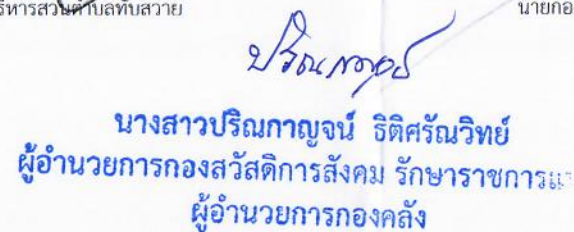 ริหารส่วนตำบลทับสวาย นายกอ
นางสาวปริณกาญจน์ ธิติศรัณวิทย์
ผู้อำนวยการกองสวัสดิการสังคม รักษาราชการแ
ผู้อำนวยการกองคลัง